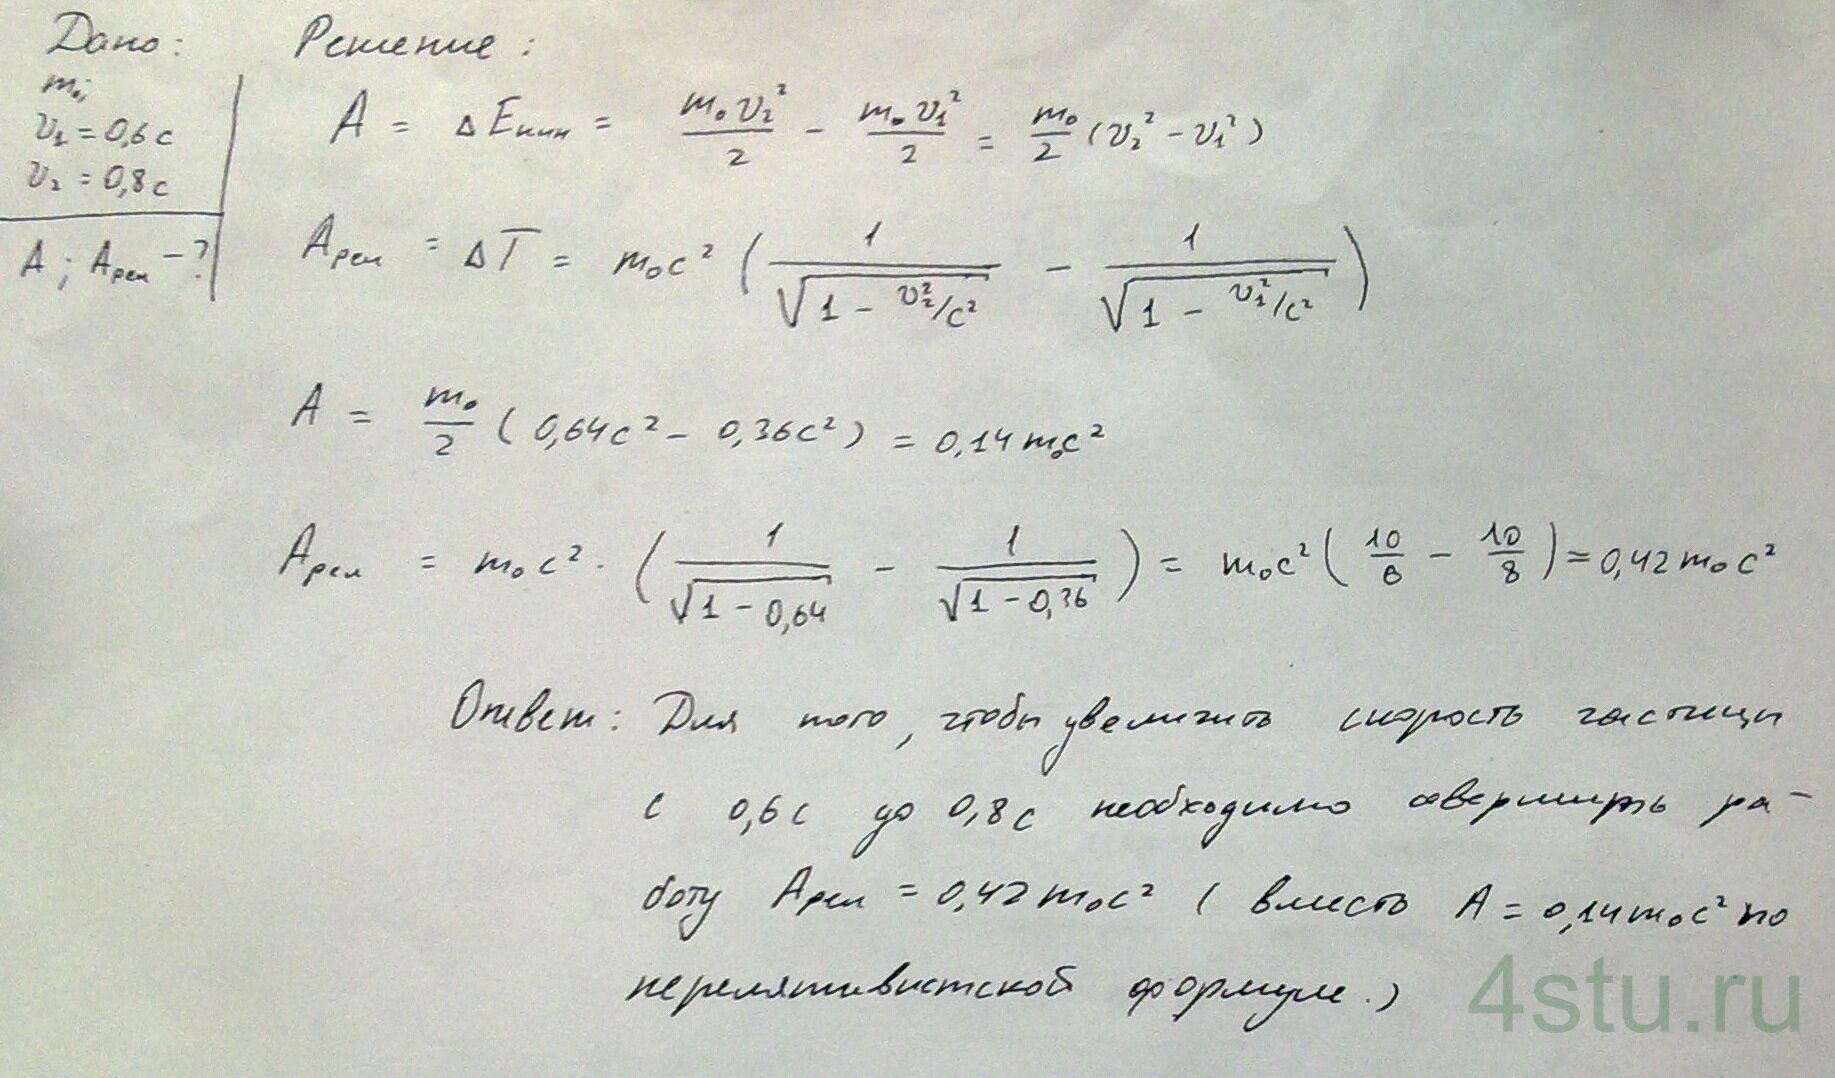 Дано: Решение:
m₀;
v₁ = 0,6c
v₂ = 0,8c
A; Aрел - ?
A = ΔEкин = m₀v₂²/2 - m₀v₁²/2 = m₀/2 (v₂² - v₁²)
Aрел = ΔT = m₀c² (1/√(1 - v₂²/c²) - 1/√(1 - v₁²/c²))
A = m₀/2 (0,64c² - 0,36c²) = 0,14m₀c²
Aрел = m₀c² · (1/√(1 - 0,64) - 1/√(1 - 0,36)) = m₀c² (10/6 - 10/8) = 0,42m₀c²
Ответ: Для того, чтобы увеличить скорость частицы
с 0,6c до 0,8c необходимо совершить ра-
боту Aрел = 0,42m₀c² (вместо A = 0,14m₀c² по
нерелятивистской формуле.)
4stu.ru